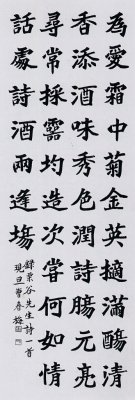 為愛霜中菊金英摘滿觴清
香添酒味秀色潤詩腸元亮
尋常採靈均造次嘗何如情
話處詩酒兩逢場
谷先生詩一首
春梅